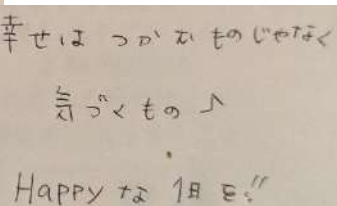 幸せは つかむ ものじゃなく
気づくもの ♪
Happy な 1日 を!!